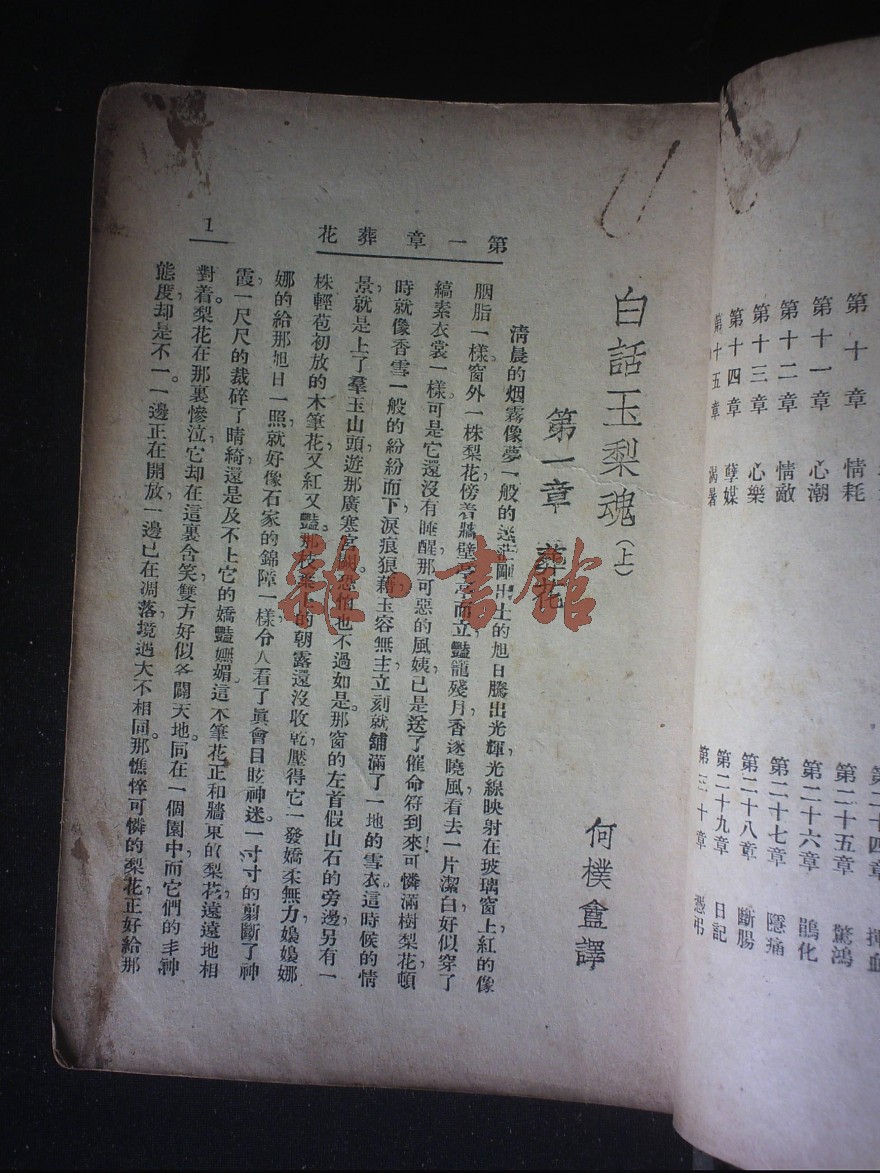 第十章 情耗
第十一章 心潮
第十二章 情敵
第十三章 心樂
第十四章 孽媒
第十五章 渴暑
第二十四章
第二十五章 驚鴻
第二十六章 鵑化
第二十七章 隱痛
第二十八章 斷腸
第二十九章 日記
第三十章 憑弔
白話玉梨魂(上)
何樸盦譯
第一章 葬花
第一章 葬花
清晨的烟霧像夢一般的迷茫剛出土的旭日騰出光輝,光線映射在玻璃窗上紅的像
胭脂一樣。窗外一株梨花傍着牆壁亭亭而立豔籠殘月香逐曉風,看去一片潔白好似穿了
縞素衣裳一樣。可是它還沒有睡醒那可惡的風姨,已是送了催命符到來!可憐滿樹梨花頓
時就像香雪一般的紛紛而下,淚痕狼藉,玉容無主立刻就舖滿了一地的雪衣。這時候的情
景,就是上了羣玉山頭,遊那廣寒宮闕恐怕也不過如是。那窗的左首假山石的旁邊另有一
株輕苞初放的木筆花,又紅又豔。那枝葉上的朝露還沒收乾,壓得它一發嬌柔無力,嬝嬝娜
娜的給那旭日一照,就好像石家的錦障一樣,令人看了眞會目眩神迷。一寸寸的剪斷了神
霞,一尺尺的裁碎了晴綺還是及不上它的嬌豔嫵媚。這木筆花正和牆東的梨花,遠遠地相
對着。梨花在那裏慘泣,它却在這裏含笑,雙方好似各闢天地。同在一個園中而它們的丰神
態度,却是不一。一邊正在開放,一邊已在凋落,境遇大不相同。那憔悴可憐的梨花,正好給那
1
雜·書館